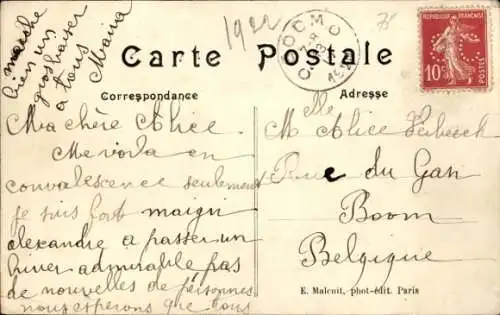 marche
bien un
gros baiser
à tous
Maria
1922
Carte Postale
Correspondance
Adresse
RÉPUBLIQUE FRANÇAISE
10c
POSTES
Ma chère Alice
Me voila en
convalescence seulement
je suis fort maigri
alexandre a passer un
hiver admirable pas
de nouvelles de personnes
nous esperons que tous
Mlle Alice
Rue du Gaz
Boom
Belgique
E. Malcuit, phot-édit. Paris